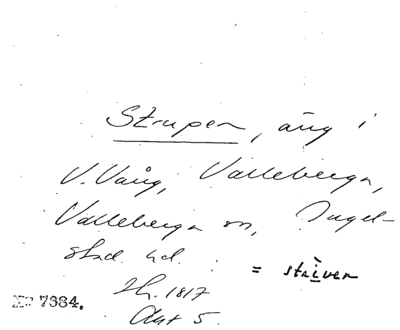 Strupen, äng i
V. Vång, Valleberga,
Valleberga sn, Ingel-
stad hd.
= striver
Lh. 1817
Akt 5.
N:o 7684.